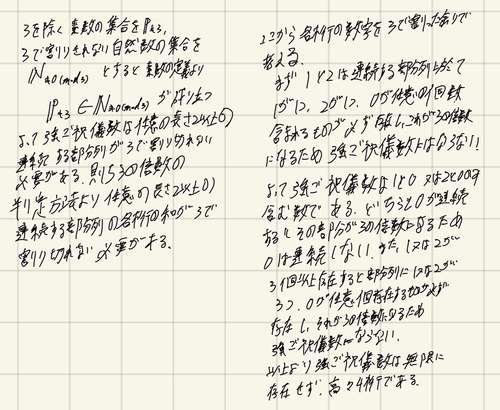 3を除く素数の集合をℙ≠3,
3で割りきれない自然数の集合を
ℕ≠0(mod3) とすると素数の定義より
ℙ≠3 ⊂ ℕ≠0(mod3) が成り立つ
よって強ご祝儀数は任意の長さ2以上の
連続する部分列が3で割り切れない
必要がある. 則ち3の倍数の
判定方法より任意の長さ2以上の
連続する部分列の各桁の和が3で
割り切れない必要がある.
ここから各桁の数字を3で割った余りで
考える.
まず 1と2は連続する部分列
1が1つ, 2が1つ, 0が任意の個数
含まれるものが必ず存在し, これが3の倍数
になるため 強ご祝儀数にはならない!
よって強ご祝儀数は1と0 又は2と0のみ
含む数である. どちらも0が連続
するとその部分が3の倍数になるため
0は連続しない. また, 1又は2が
3個以上存在すると部分列に1又は2が
3つ, 0が任意個存在するものが必ず
存在し, それが3の倍数になるため
強ご祝儀数にならない.
以上より強ご祝儀数は無限に
存在せず, 高々4桁である.